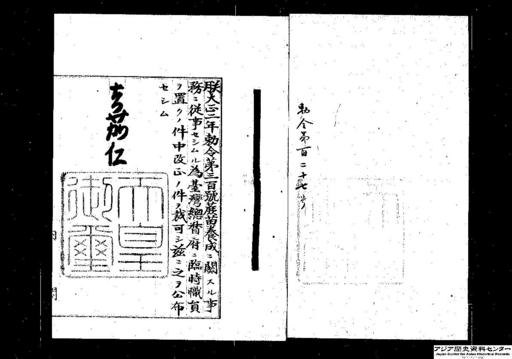 勅令第百二十七号
朕大正二年勅令第三百號蔗苗養成ニ關スル事
務ニ從事セシムル為臺灣總督府ニ臨時職員
ヲ置クノ件中改正ノ件ヲ裁可シ茲ニ之ヲ公布
セシム
嘉仁
天皇
御璽
アジア歴史資料センター
Japan Center for Asian Historical Records